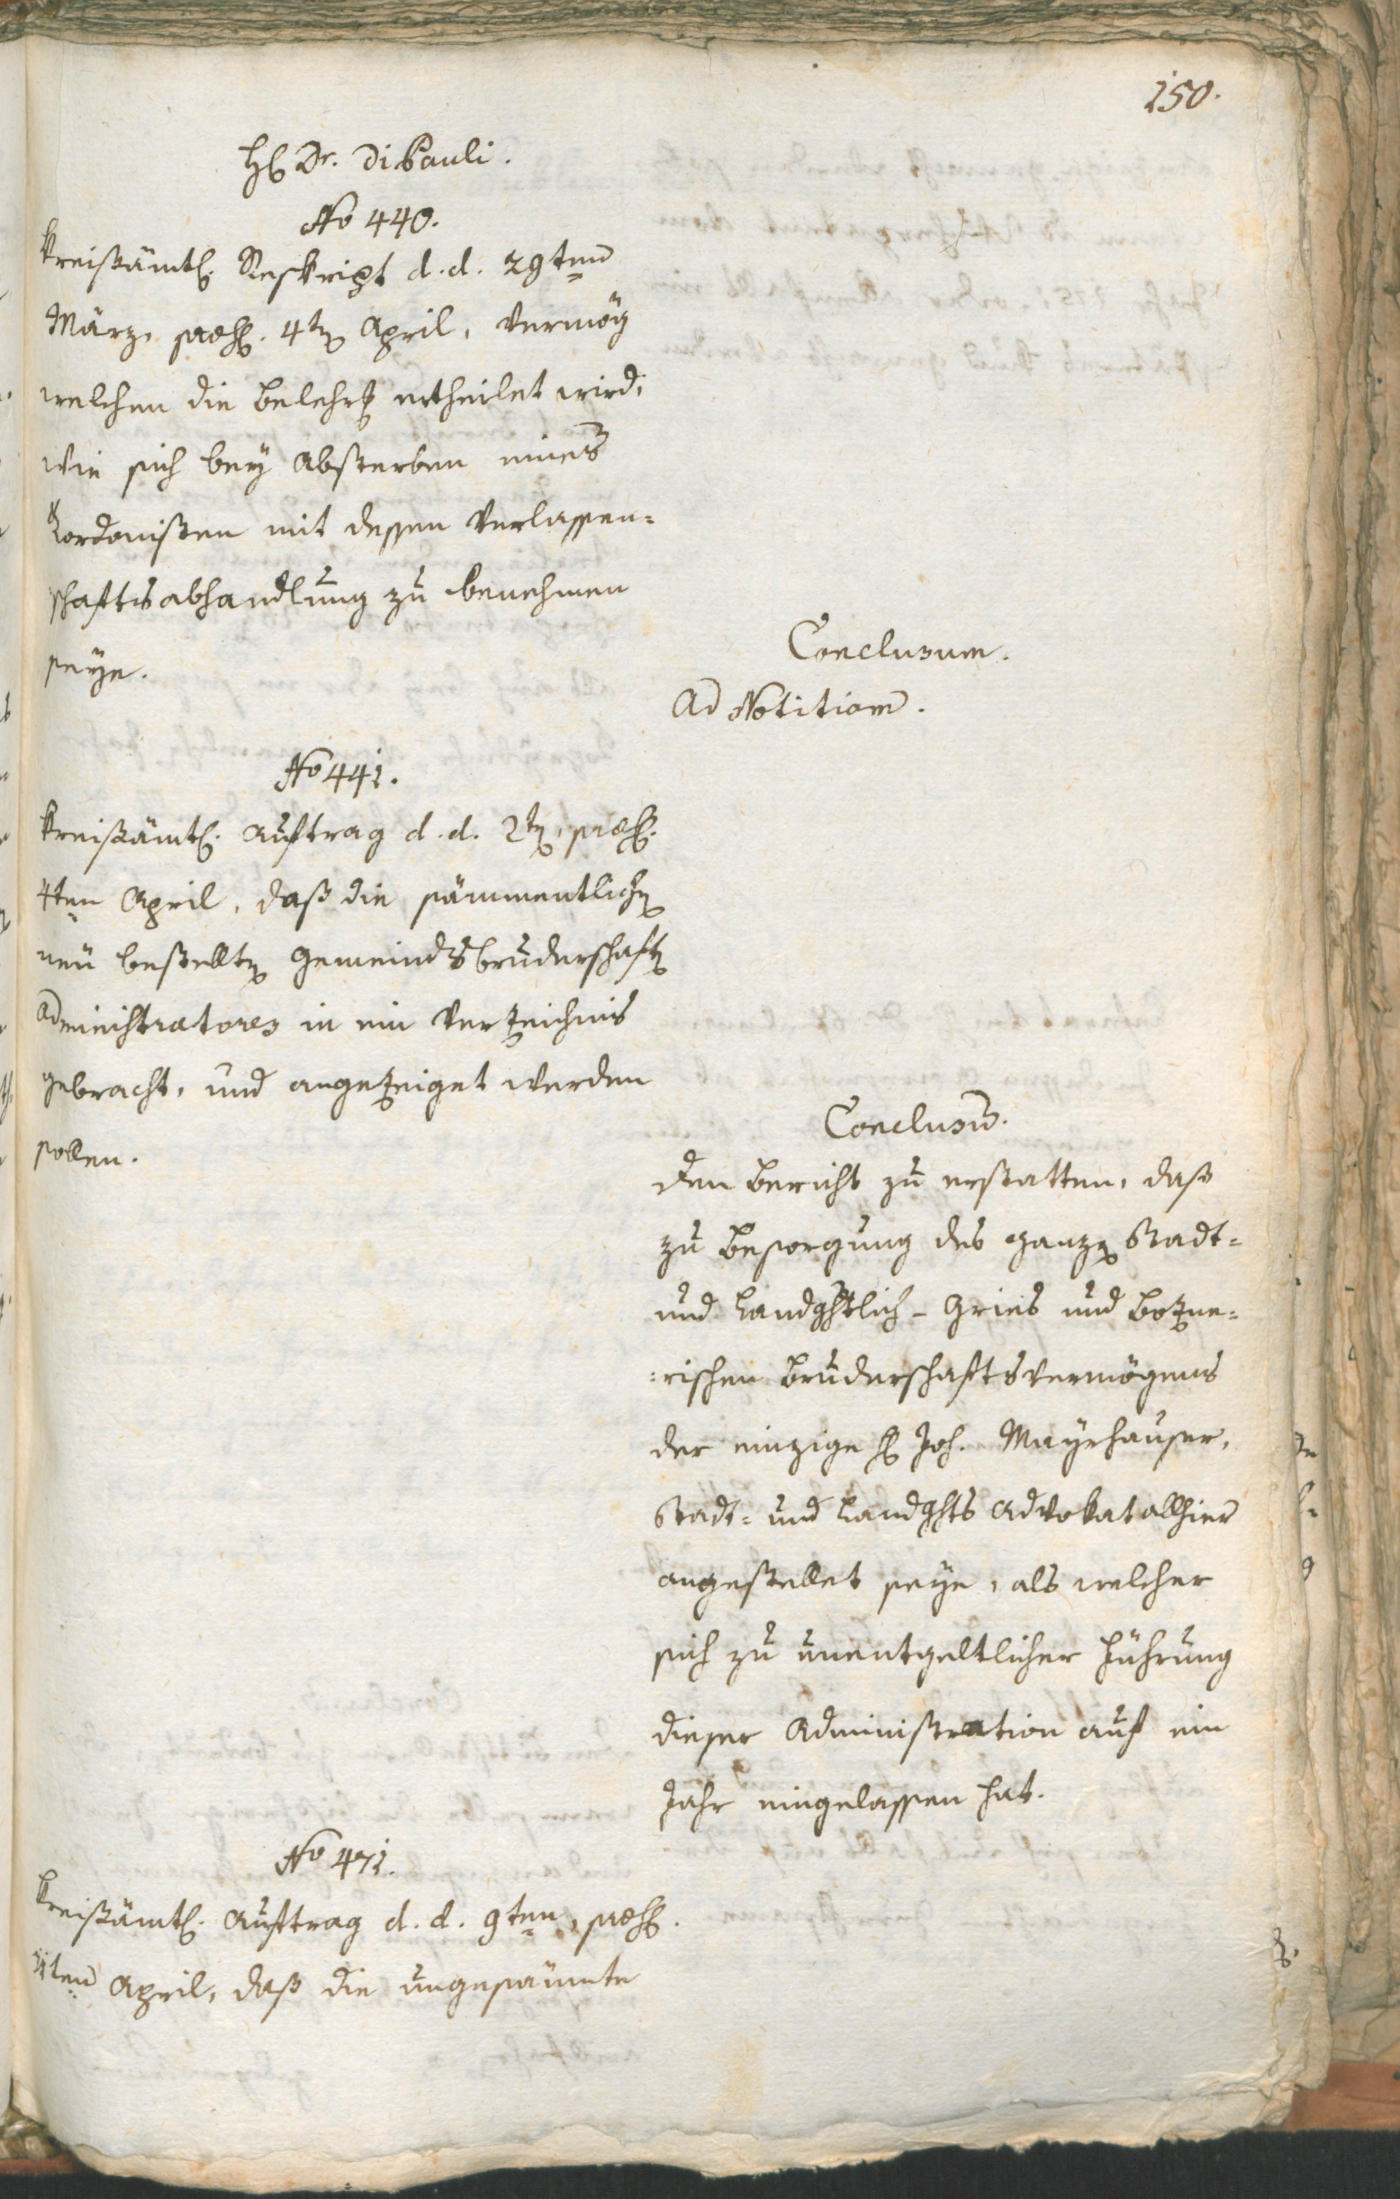 150.
H Dr. Di Pauli.
No 440.
Kreißämtl. Reskript d. d. 29ten
März, præs. 4ten April, vermög
welchen die Belehrg ertheilet wird,
wie sich bey Absterben eines
Kordonisten mit dessen Verlassen=
schaftsabhandlung zu benehmen
seye.
Conclusum.
Ad Notitiam.
No 441.
Kreißämtl. Auftrag d. d. 2ten, præs.
4ten April, daß die sämmentlichen
neu bestellten Gemeinds bruderschaften
Administratores in ein Verzeichnis
gebracht, und angezeiget werden
sollen.
Conclusum.
Den Bericht zu erstatten, daß
zu Besorgung des ganzen Stadt=
und Landghtlich- Gries und Bozne=
=rischen Bruderschaftsvermögens
der einzige H Joh. Mayrhauser,
Stadt= und Landghts Advokat allhier
angestellet seye, als welcher
sich zu unentgeltlicher Führung
dieser Administration auf ein
Jahr eingelassen hat.
No 471.
Kreißämtl. Auftrag d. d. 9ten, præs.
11ten April, daß die ungesäumte